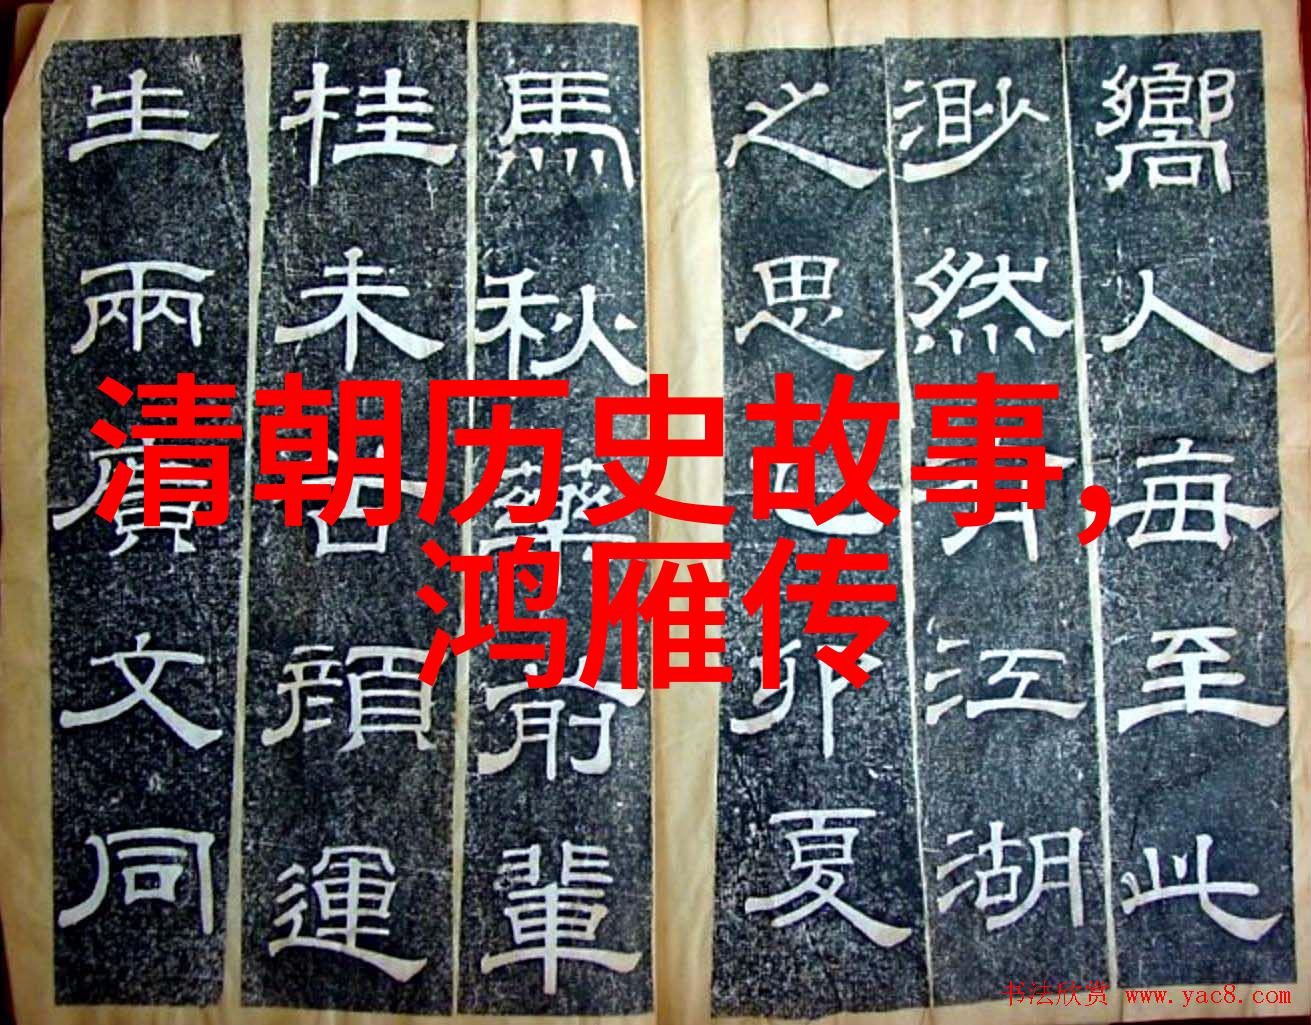 清朝历史故事,
鸿雁传
嚮人每至此
渺然有江湖
之思卯夏
馬秋藥前輩
桂未谷顏運
生兩廣文同
书法欣赏 www.yac8.com